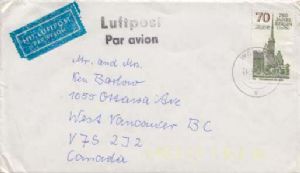 MIT LUFTPOST
PAR AVION
Luftpost
Par avion
70
Mr. and Mrs.
Ken Barlow
1055 Ottawa Ave
West Vancouver BC
V7S 2J2
Canada